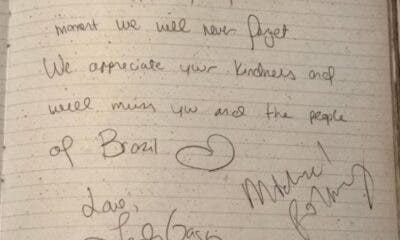 moment we will never forget
We appreciate your kindness and
will miss you and the people
of Brazil
Love,